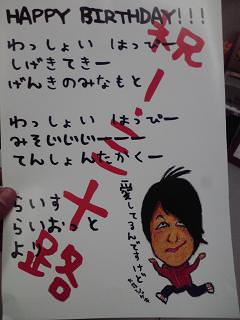 HAPPY BIRTHDAY!!!
わっしょい はっぴー
しげきてきー
げんきのみなもと
わっしょい はっぴー
みそじじじーーー
てんしょんたかくー
らいす
らいおっと
より
祝！！三十路
愛してるんですけど